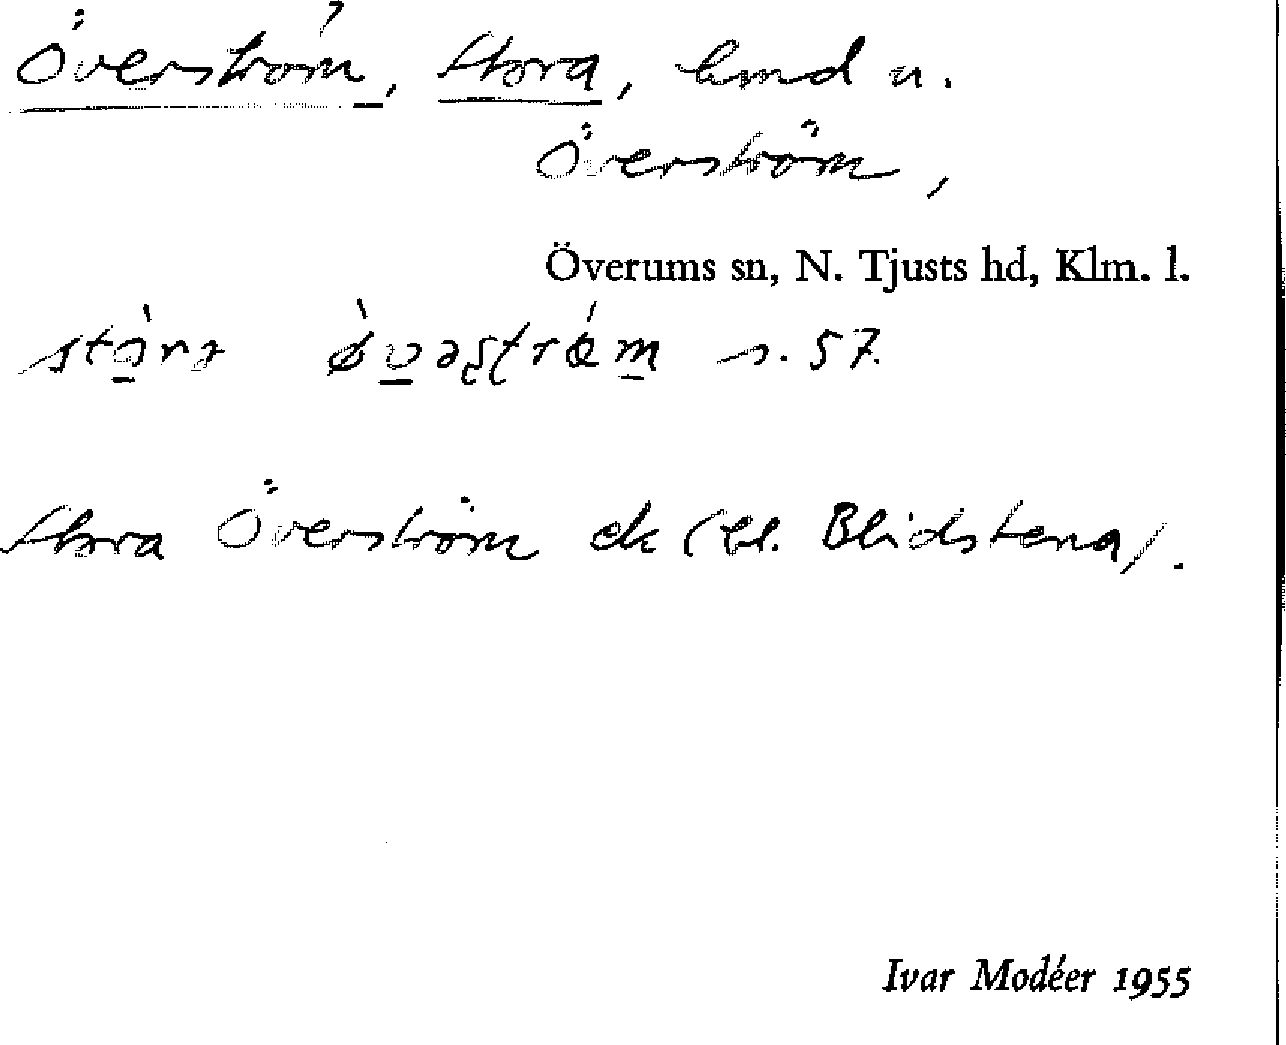 Överström, Stora, lmd u.
Överström,
Överums sn, N. Tjusts hd, Klm. l.
s. 57.
Stora Överström ek (bl. Blidstena).
Ivar Modéer 1955